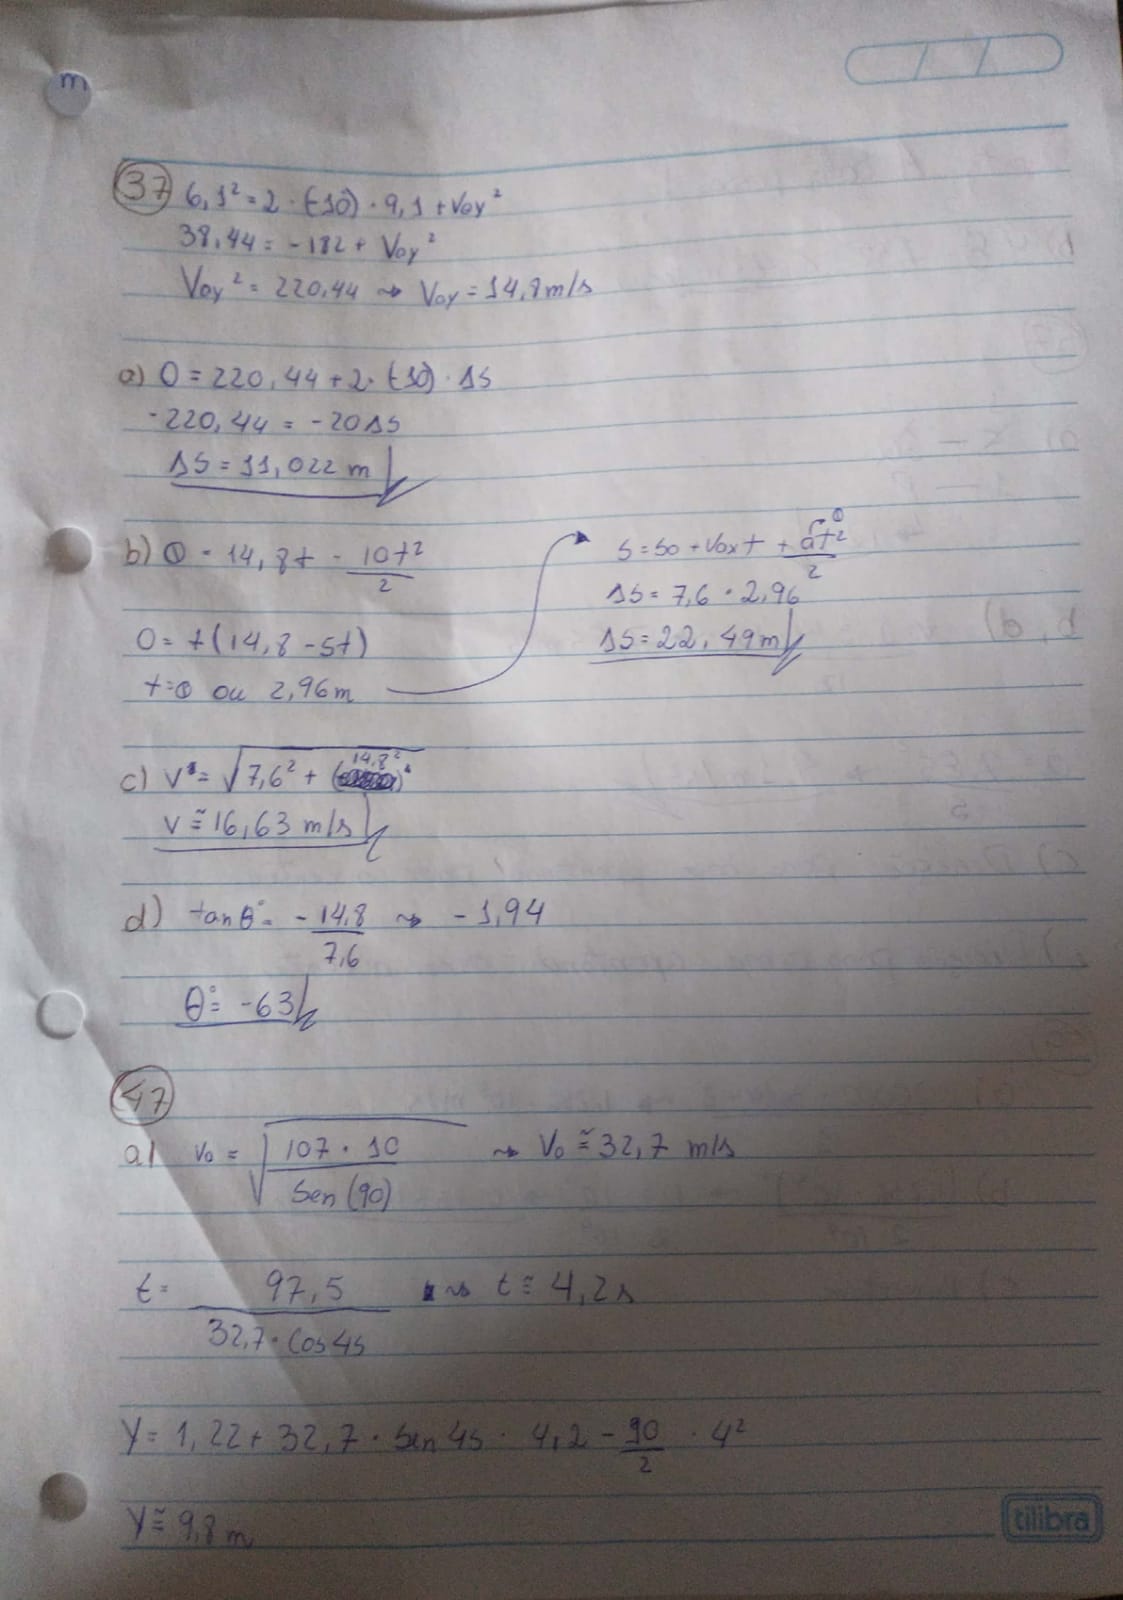 m
37 6,1² = 2 · (-10) · 9,1 + Voy²
38,44 = -182 + Voy²
Voy² = 220,44 → Voy = 14,8 m/s
a) 0 = 220,44 + 2 · (-10) · ΔS
-220,44 = -20ΔS
ΔS = 11,022 m
b) 0 = 14,8t - 10t²/2
0 = t(14,8 - 5t)
t=0 ou 2,96m
S = So + Voxt + at²/2 0
ΔS = 7,6 · 2,96
ΔS = 22,49m
c) V = √7,6² + 14,8²
V ≅ 16,63 m/s
d) tan θ = -14,8/7,6 → -1,94
θ = -63
47
a) Vo = √107 · 10/Sen(90) → Vo ≅ 32,7 m/s
t = 97,5/32,7 · Cos45 → t ≅ 4,2s
Y = 1,22 + 32,7 · Sen 45 · 4,2 - 10/2 · 4²
Y ≅ 9,8 m
tilibra